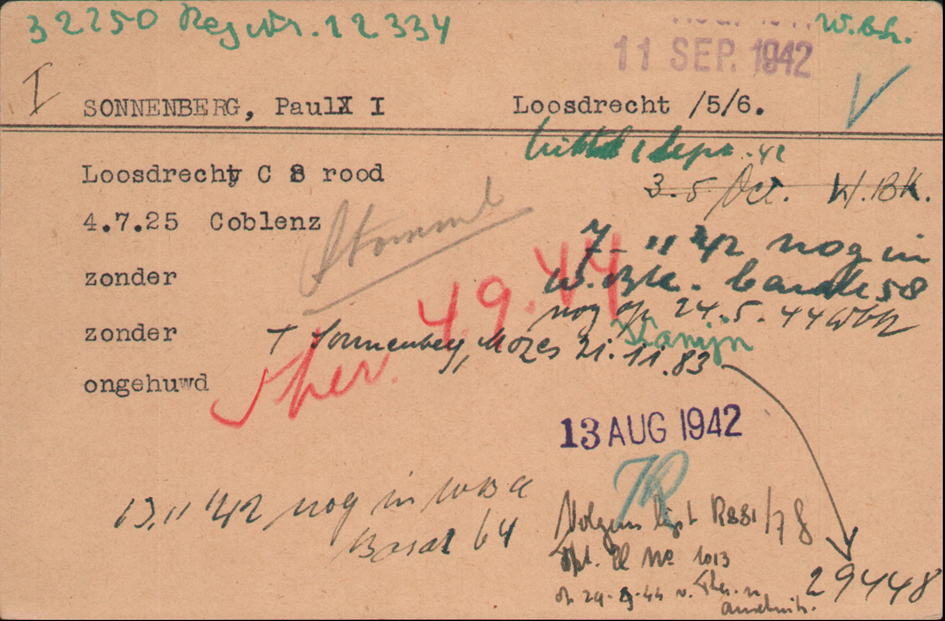 32250 Reg Nr. 12334
W.bk.
11 SEP. 1942
I SONNENBERG, Paul I Loosdrecht /5/6.
Loosdrecht C 8 rood
1 Sept. 42
3-5 Oct. W.BK.
4.7.25 Coblenz
Stammt
7-11 '42 nog in
W.Bk. barak 58
zonder
4.9.44
nog op 24.5.44 Wbk
zonder
+ Sonnenberg, Mozes 21.11.83
Konijn
ongehuwd
Ther.
13 AUG 1942
JR
13.11 '42 nog in WBK
Barak 64
Volgens lijst R881/78
29448
Tpt. No 1013
29-9-44 v. Ther. n.
Auschwitz.